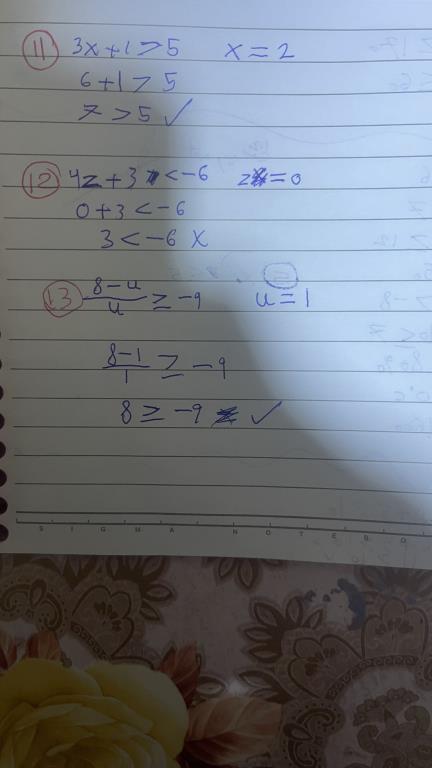 11 3x+1>5 x=2
6+1>5
7>5 ✓
12 4z+3<-6 z=0
0+3<-6
3<-6 X
13 8-u/u ≥ -9 u=1
8-1/1 ≥ -9
8≥-9 ✓
SIGMA NOTEBOOK